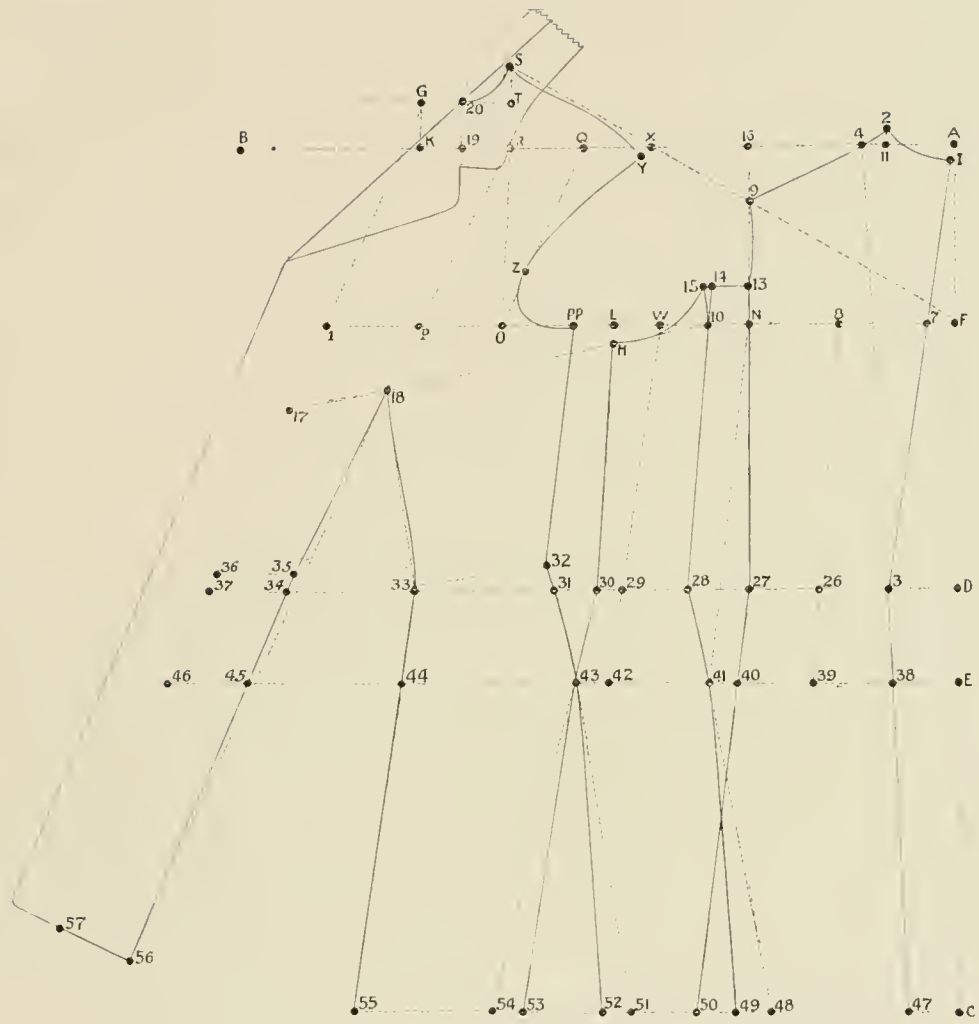 S
G 20 T 2
B K 19 R Q X 16 4 11 A
Y I
9
Z 15 14 13
1 P O PP L W 10 N 8 7 F
H
18
17
36 35 32
37 34 33 31 30 29 28 27 26 3 D
46 45 44 43 42 41 40 39 38 E
57
56
55 54 53 52 51 50 49 48 47 C